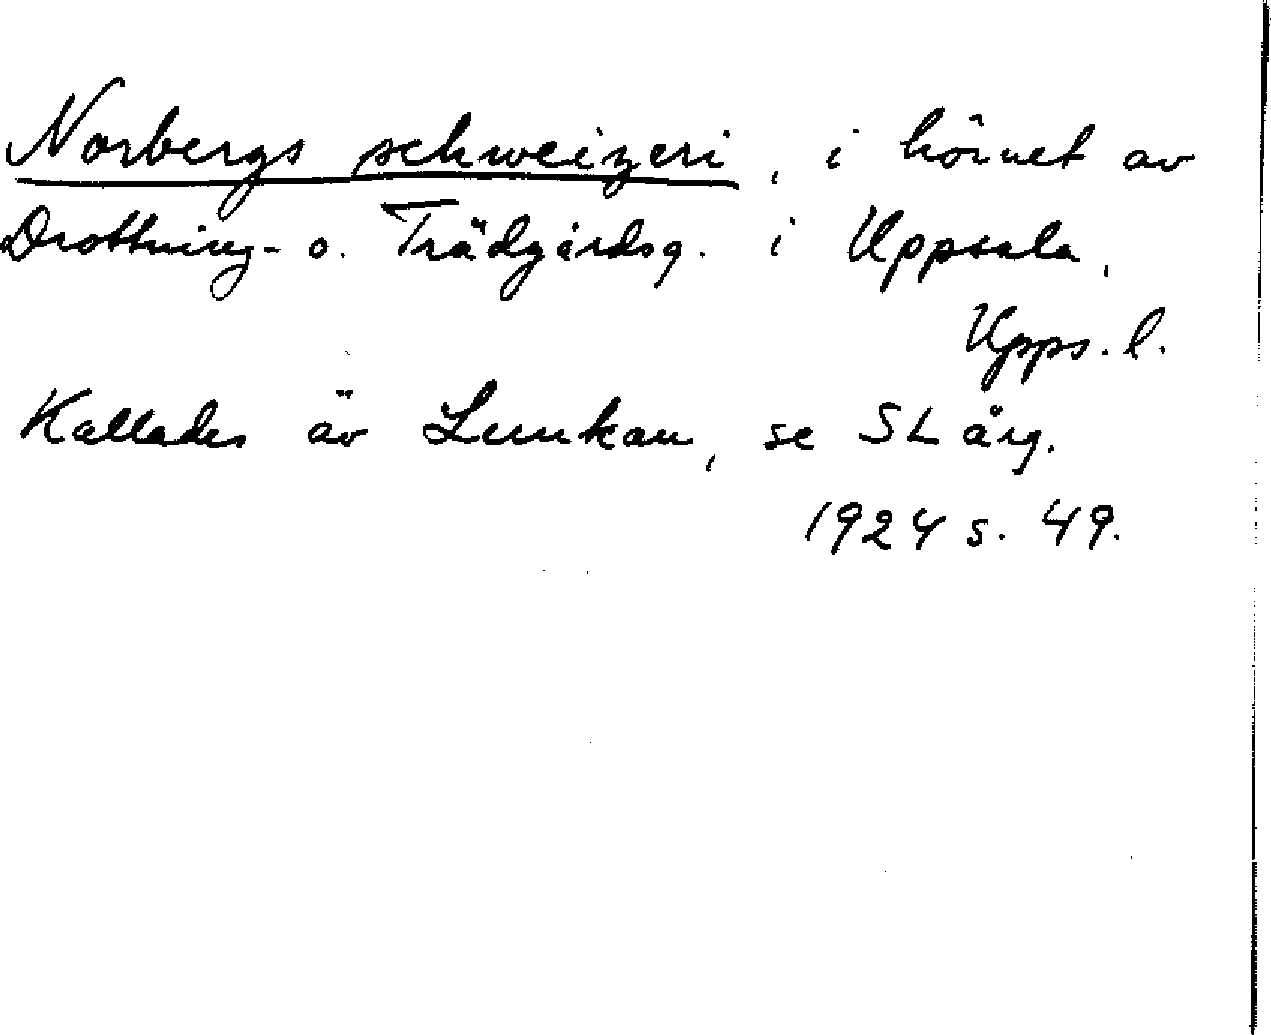 Norbergs schweizeri, i hörnet av
Drottning- o. Trädgårdsg. i Uppsala,
Upps. l.
Kallades äv Lunkan, se SL årg.
1924 s. 49.